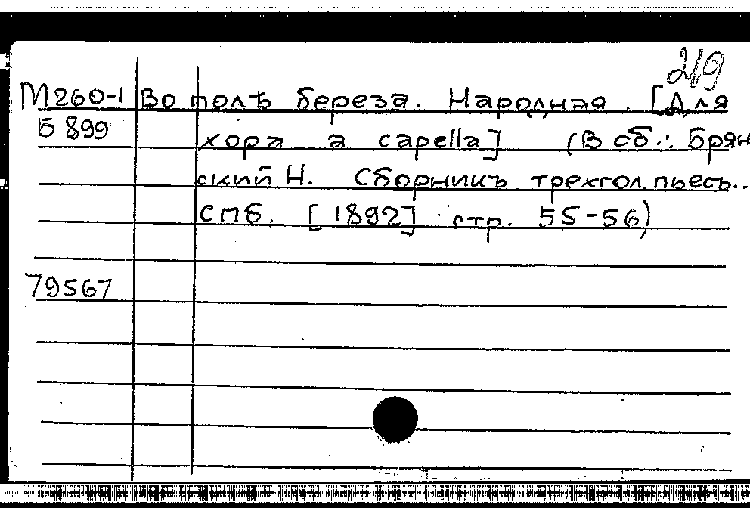 219
М260-1 Во полѣ береза. Народная. [Для
Б 899 хора a capella] (В сб.: Брян
ский Н. Сборникъ трехгол. пьесъ..
СПб. [1892] стр. 55-56)
79567